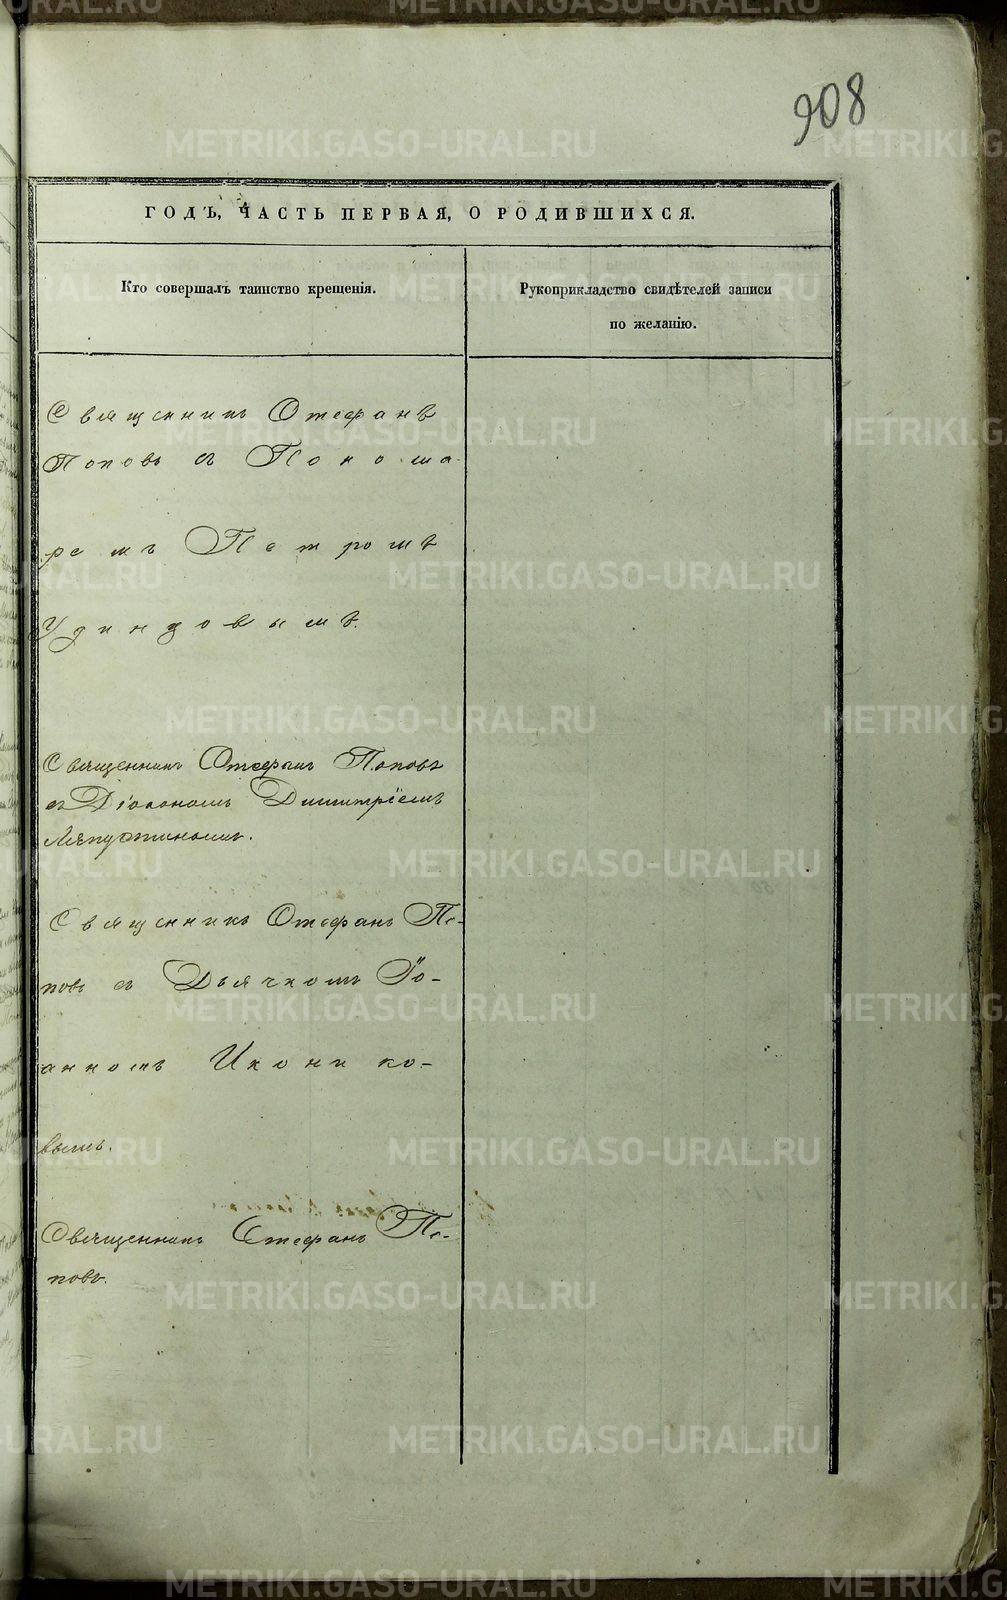 908
ГОДЪ, ЧАСТЬ ПЕРВАЯ, О РОДИВШИХСЯ.
Кто совершалъ таинство крещенія.
Рукоприкладство свидѣтелей записи
по желанію.
Священникъ Стефанъ
Поповъ съ Понома-
ремъ Петромъ
Удинцовымъ.
Священникъ Стефанъ Поповъ
съ Діакономъ Димитріемъ
Ляпустиномъ.
Священникъ Стефанъ По-
повъ съ Дьячкомъ Іо-
анномъ Икони ко-
вымъ.
Священникъ Стефанъ По-
повъ.
METRIKI.GASO-URAL.RU